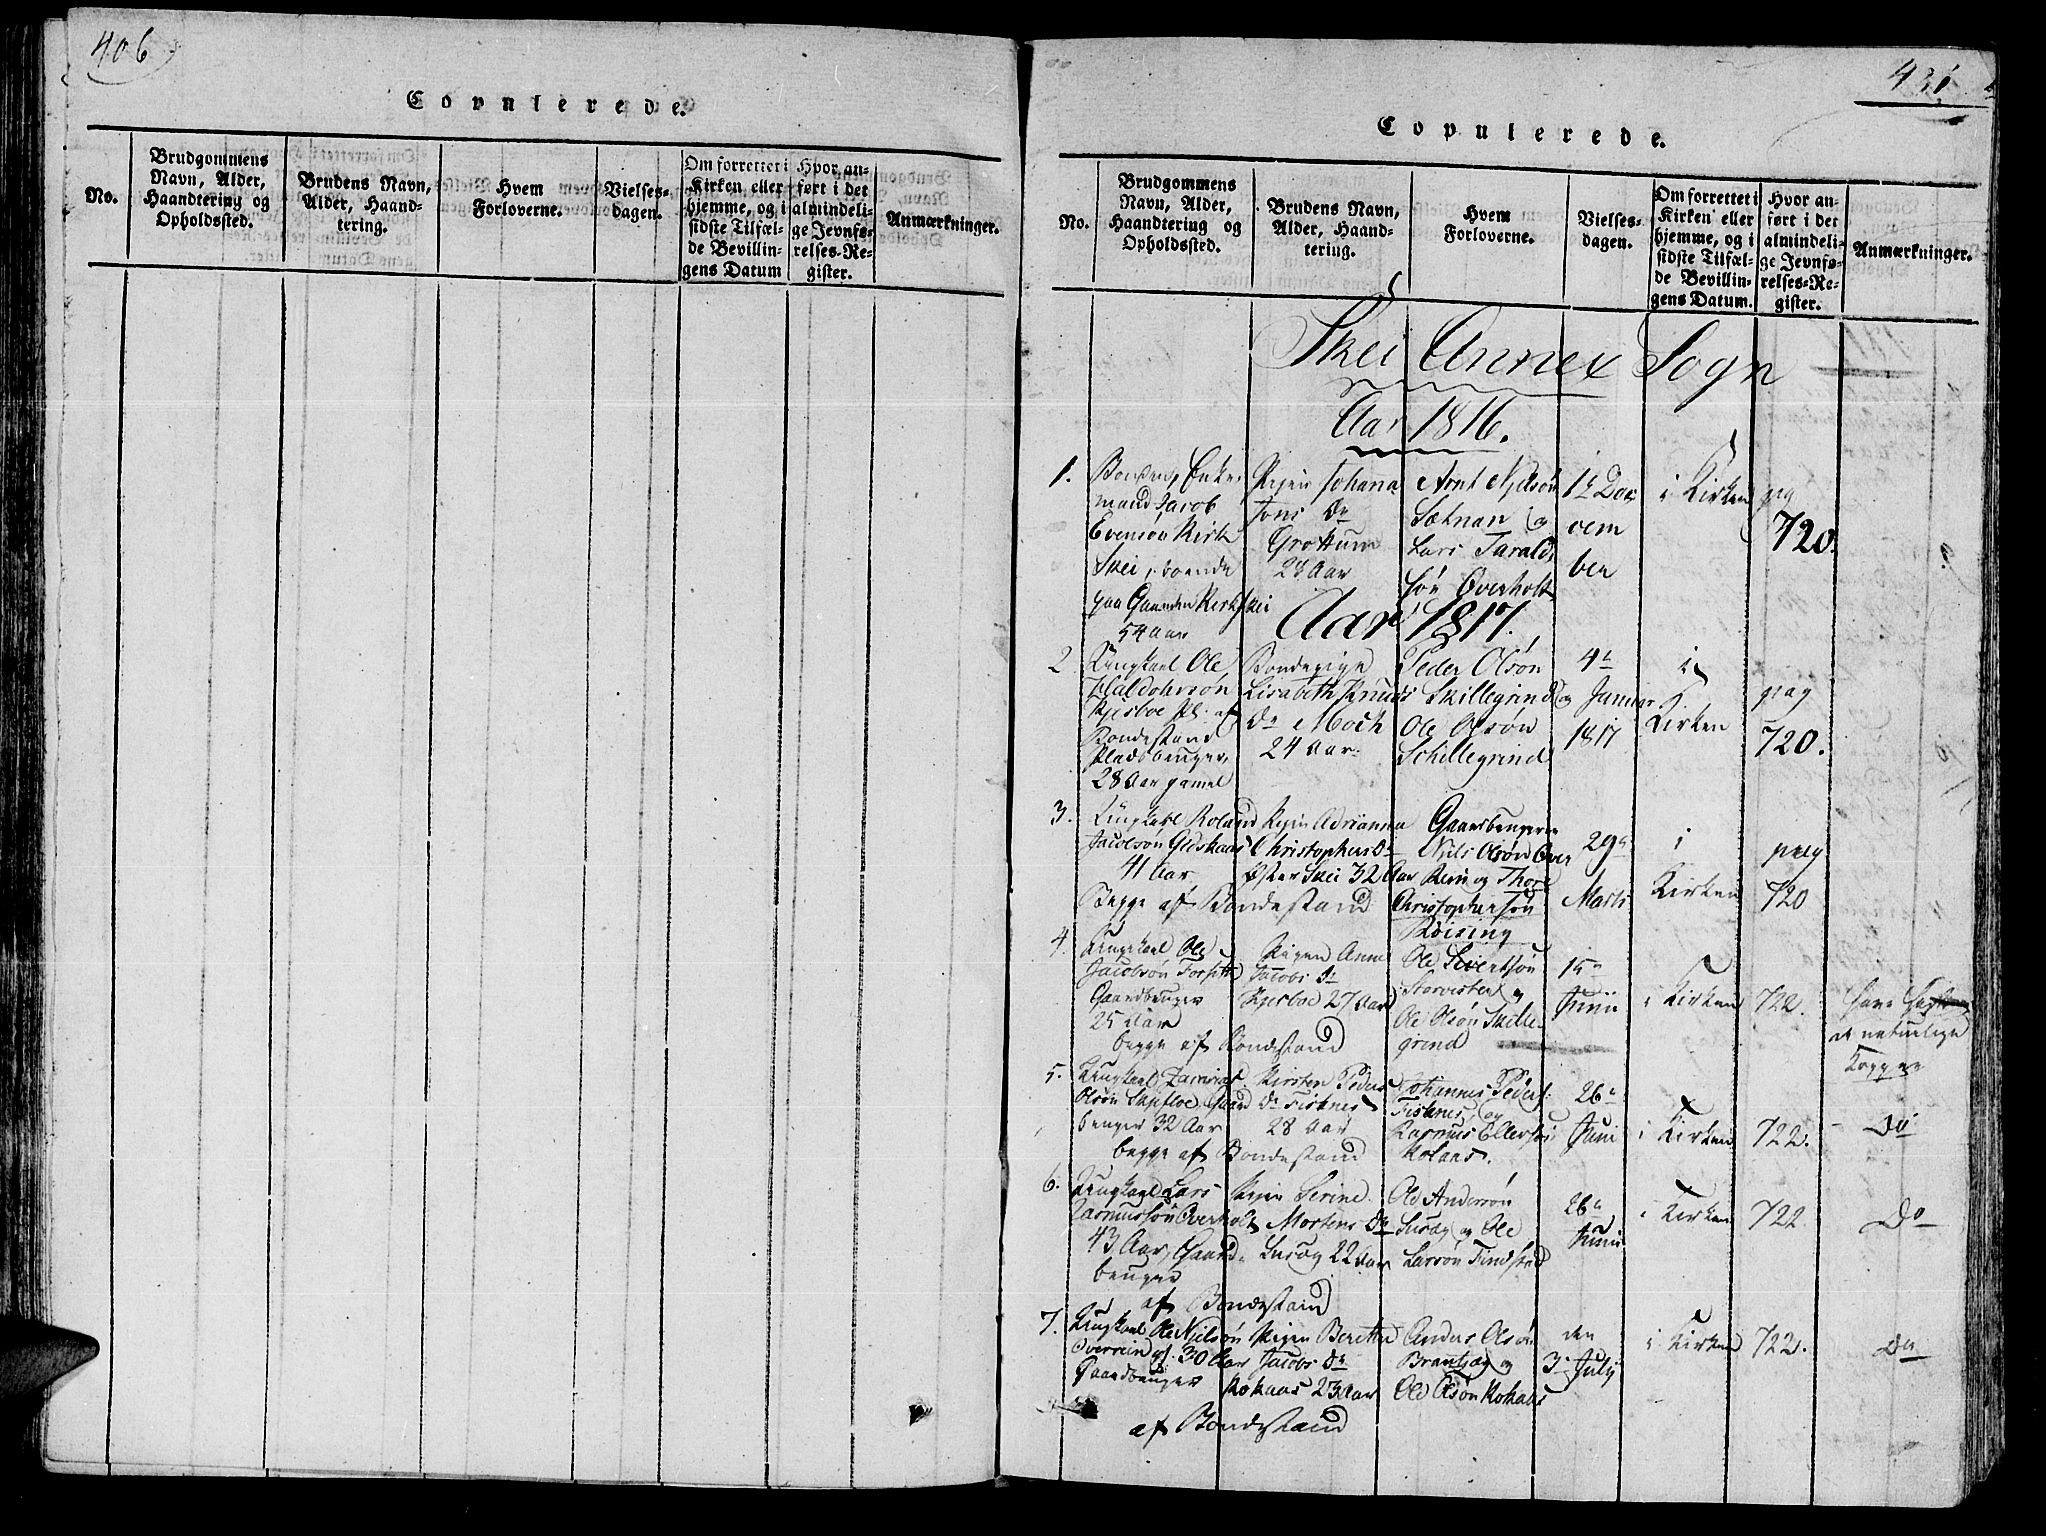 406
Copulerede.
No.
Brudgommens Navn, Alder, Haandtering og Opholdssted.
Brudens Navn, Alder, Haandtering.
Hvem Forloverne.
Vielsesdagen.
Om forrettet i Kirken eller hjemme, og i sidste Tilfælde Bevillingens Datum
Hvor anført i det almindelige Jevnførelses-Register.
Anmærkninger.
431
Copulerede.
No.
Brudgommens Navn, Alder, Haandtering og Opholdssted.
Brudens Navn, Alder, Haandtering.
Hvem Forloverne.
Vielsesdagen.
Om forrettet i Kirken eller hjemme, og i sidste Tilfælde Bevillingens Datum.
Hvor anført i det almindelige Jevnførelses-Register.
Anmærkninger.
Skei Annex Sogn
Aar 1816.
1.
Enke
mand Jacob
Evensøn Kirk
Skei, boende
paa Gaarden Kirkskei
54 Aar
Pigen Johana
Jons Dr
Grøttum
28 Aar
Arnt Nilsøn
Sætnan og
Lars Tarald
søn Overholt
vem
ber
i Kirken
pag
720.
Aar 1817.
2
Ungkarl Ole
Haldohrsøn
af
Bondestand
Pladsbruger,
28 Aar gamel
Bondepige
Lisabeth Knuds
Dr Moch
24 Aar
Peder Olsøn
Skillegrind og
Ole Olsøn
Schillegrind
4de
Januar
1817
i
Kirken
pag
720.
3.
Ungkarl Roland
Jacobsøn Gidskaas
41 Aar
Begge af Bondestand
Pigen Adrianna
Christophers Dr
Øster Skei 32 Aar
Gaardbrugerne
Niels Olsøn Over
Rein og Thore
Christophersøn
Røising
29de
Marts
i
Kirken
pag
720
4.
Ungkarl Ole
Jacobsøn Forsetta
Gaardbruger
25 Aar
begge af Bondestand
Pigen Anne
Jacobs Dr
27 Aar
Ole Sivertsøn
og
Ole Olsøn Skille
grind
15de
Junii
i Kirken
722.
have
naturlige
Kopper
5.
Ungkarl
Olsøn Skjefloe, Gaard
bruger 32 Aar
begge af Bondestand
Kirsten Peders
Dr Fisknes
28 Aar
Johannes Peders:
Fisknes, og
Rasmus Ellefsøn
Kolaas.
26de
Juni
i Kirken
722.
Do
6.
Ungkarl Lars
Rasmussøn Overholt
43 Aar, Gaard-
bruger
af Bondestand
Pigen Serine
Mortens Dr
Susæg 22 Aar
Ole Andersøn
Susæg og Ole
Larsøn Findstad
26de
Junii
i Kirken
722
Do
7.
Ungkarl Ole Nielsøn
Overrein gl. 30 Aar
Gaardbruger
af Bondestand
Pigen Beretha
Jacobs Dr
Kokaas 23 Aar
Anders Olsøn
og
Ole Olsøn Kokaas
den
3 July
i Kirken
722.
Do